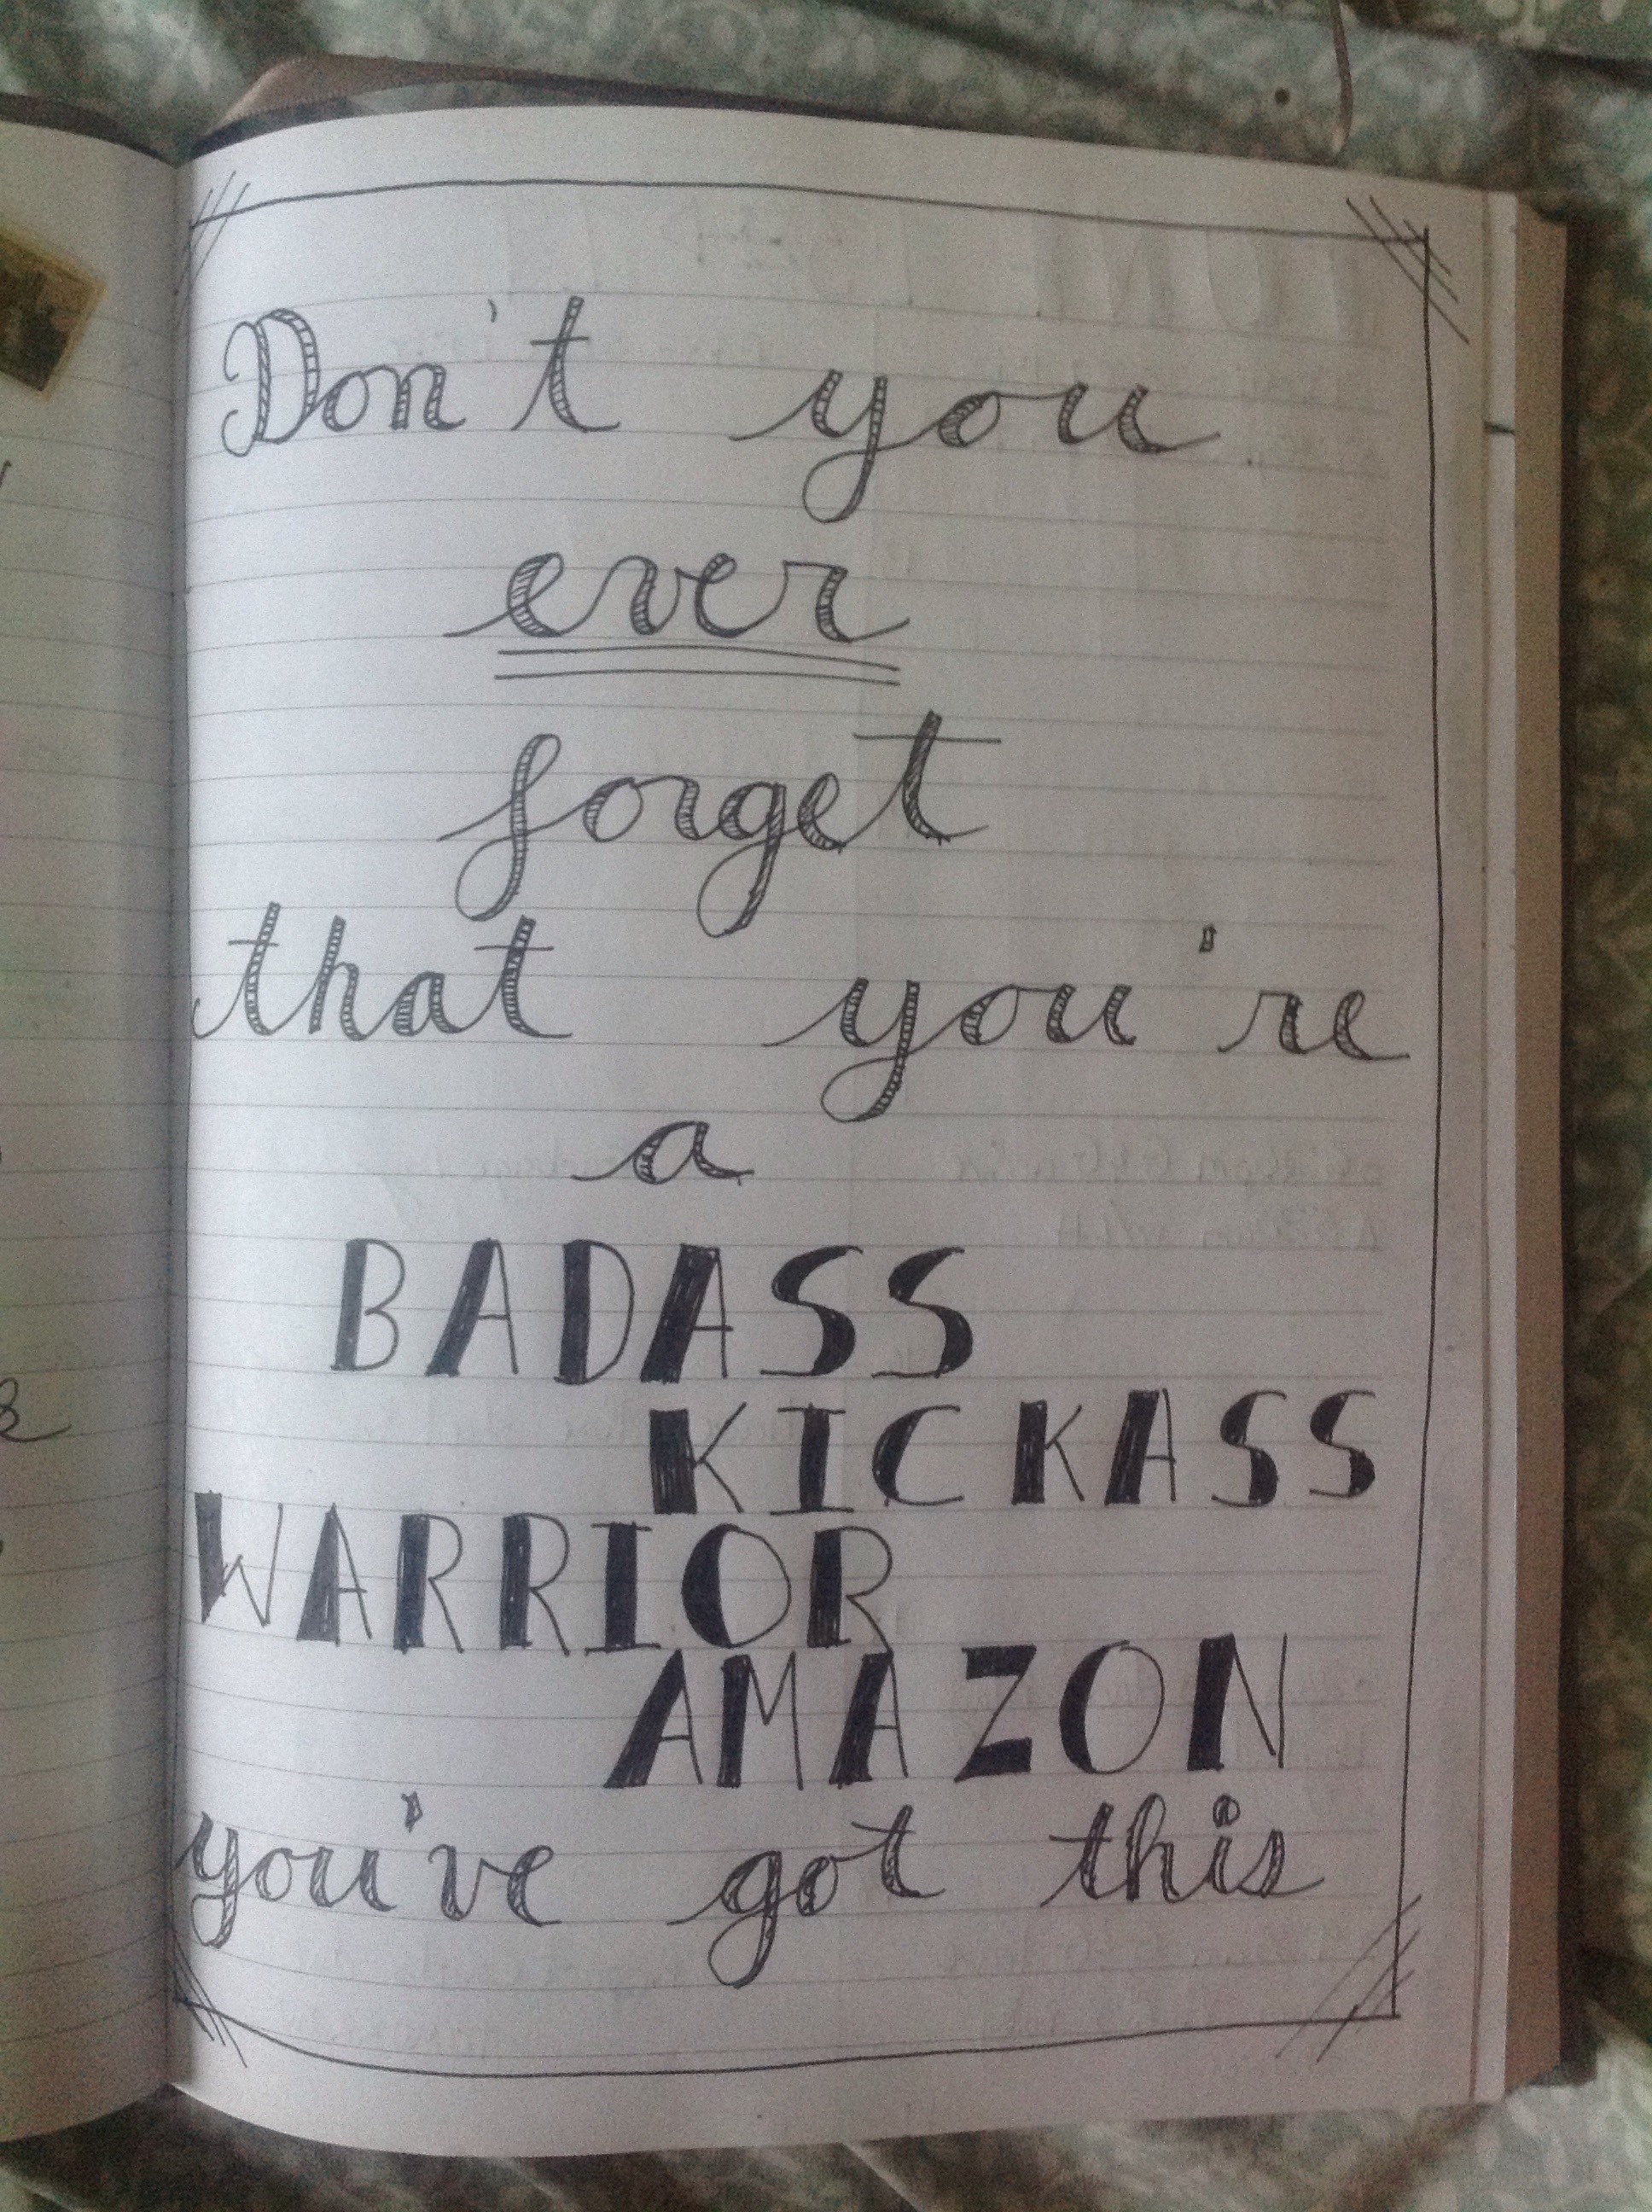 Don't you
ever
forget
that you're
a
BADASS
KICKASS
WARRIOR
AMAZON
you've got this